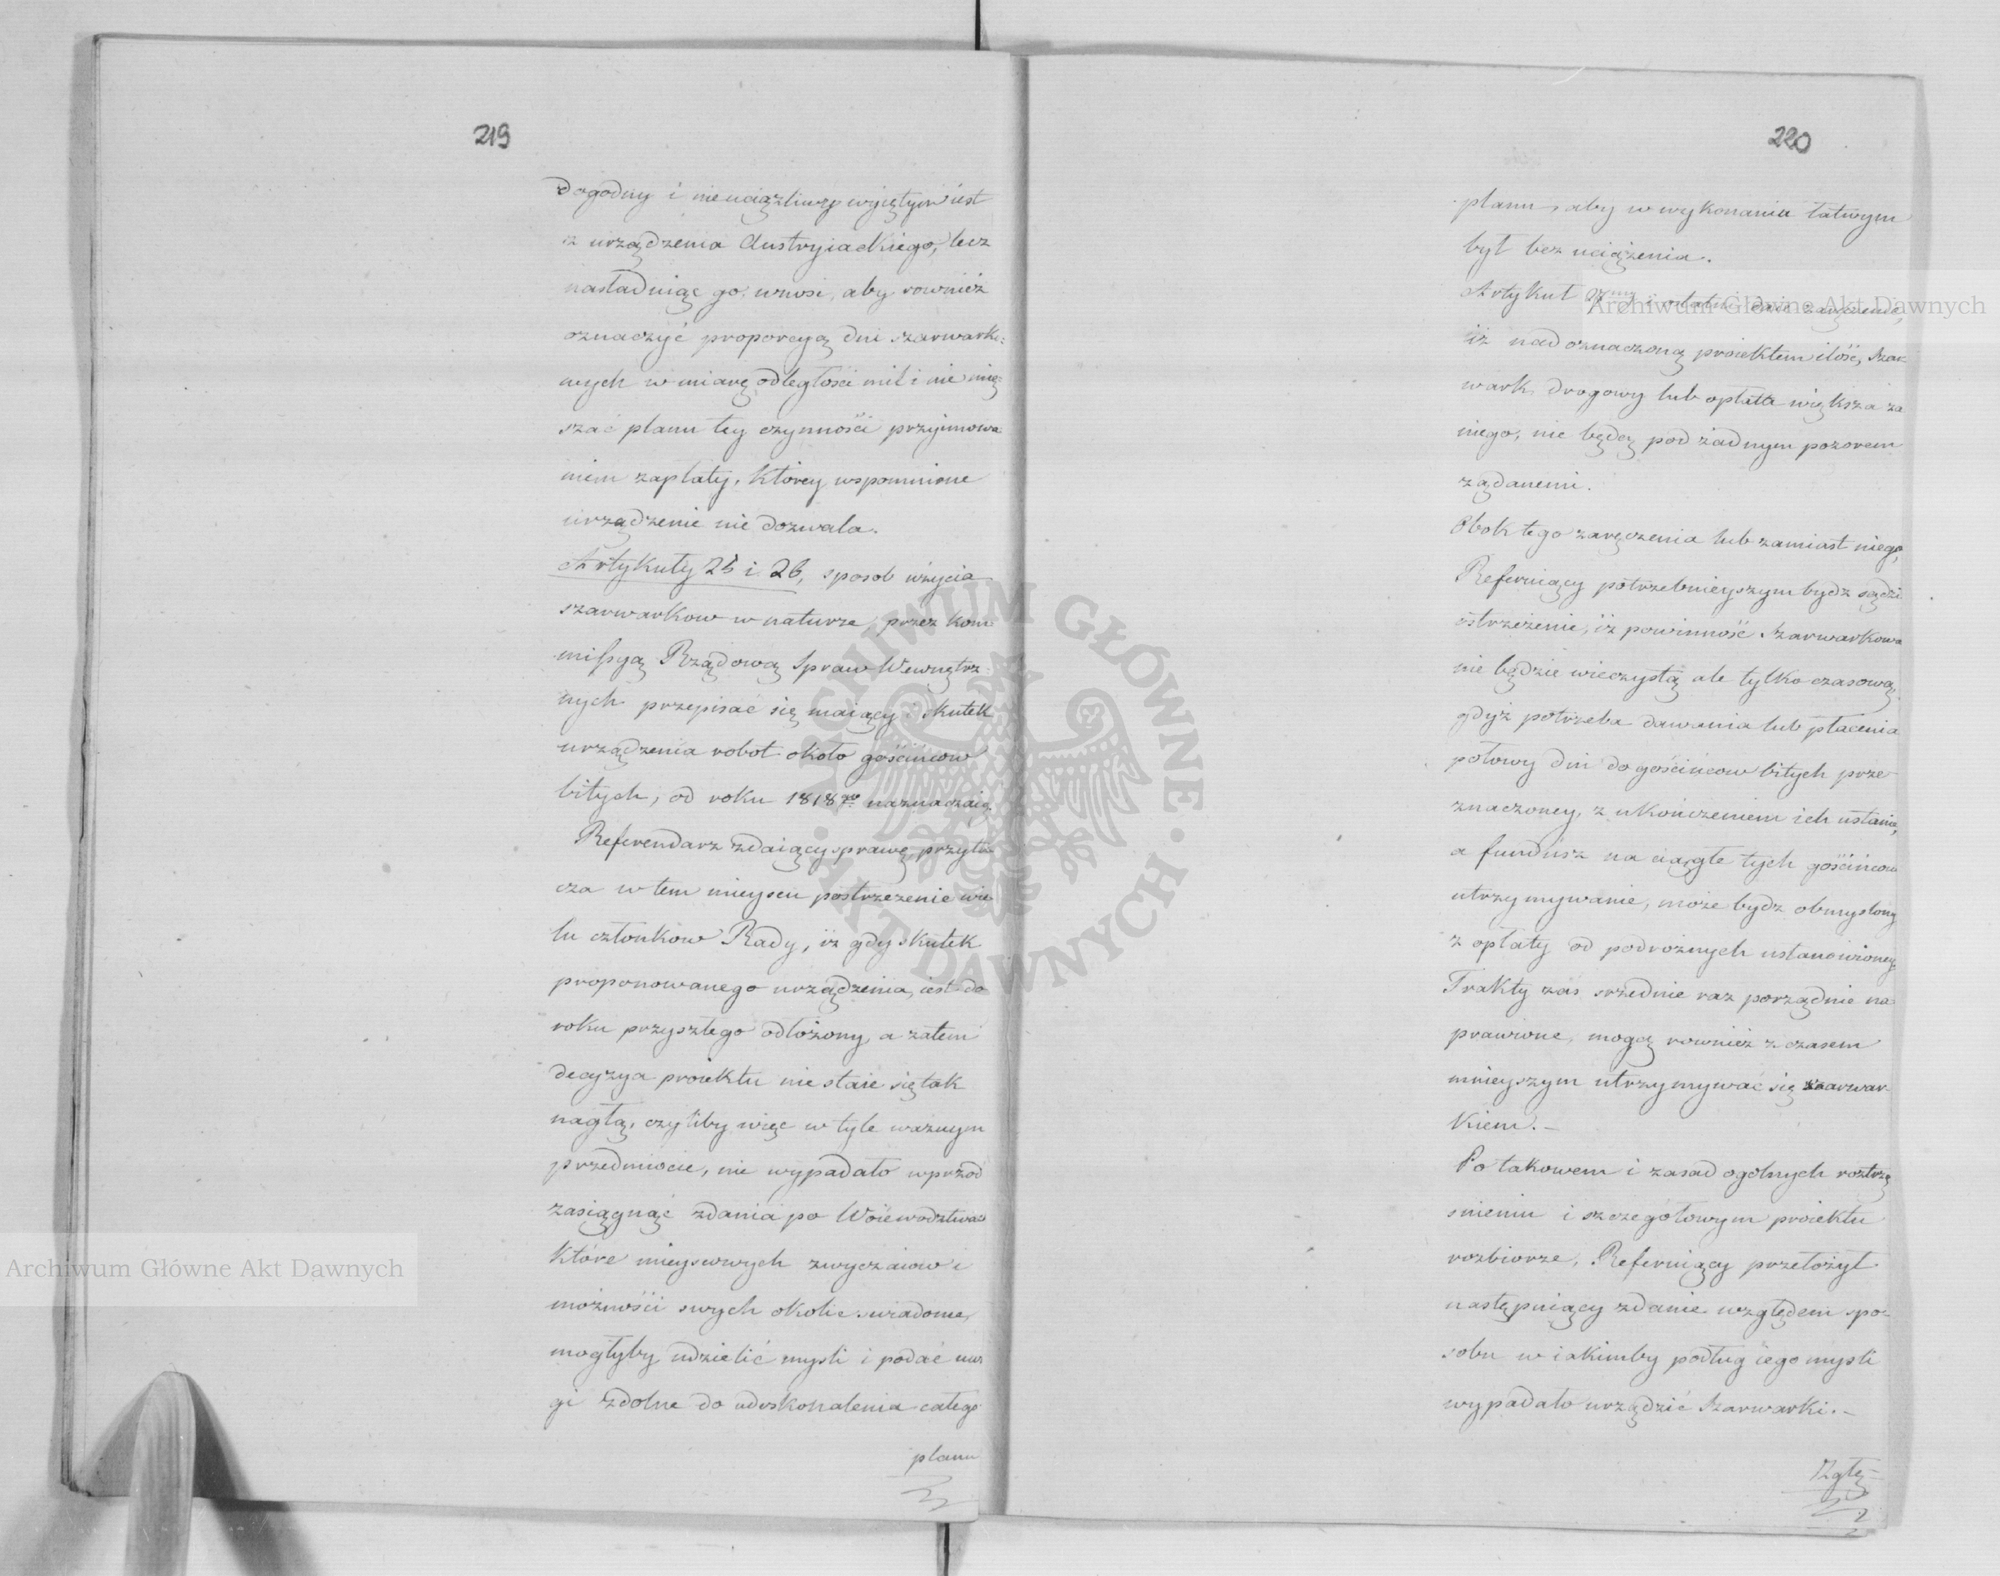 219
dogodny i nieuciążliwy wyiętym iest
z urządzenia Austryiackiego, lecz
naśladuiąc go, wnosi, aby rownież
oznaczyć proporcyą dni szarwarko:
wych w miarę odległości mil i nie mię:
szać planu tey czynności przyimowa
niem zapłaty, którey wspomnione
urządzenie nie dozwala.
Artykuły 25 i 26, sposob użycia
szarwarkow w naturze, przez kom
missyą Rządową Spraw Wewnętrz
nych przepisać się maiący i skutek
urządzenia robot około gościńcow
bitych, od roku 1818go naznaczaią.
Referendarz zdaiący sprawę, przyta
cza w tem mieyscu postrzeżenie wie
lu członkow Rady, iż gdy skutek
proponowanego urządzenia, iest do
roku przyszłego odłożony, a zatem
decyzya proiektu nie staie się tak
nagłą, czyliby więc w tyle ważnym
przedmiocie, nie wypadało wprzod
zasiągnąć zdania po Woiewodztwach
które mieyscowych zwyczaiow i
możności swych okolic świadome,
mogłyby udzielić myśli i podać uwa
gi zdolne do udoskonalenia całego
planu
220
planu, aby w wykonaniu łatwym
był bez uciążenia.
Artykuł 27my i ostatni daie zaręczenie,
iż nad oznaczoną proiektem ilość, szar
wark drogowy lub opłata większa za
niego, nie będą pod żadnym pozorem
żądanemi.
Obok tego zaręczenia lub zamiast niego,
Referuiący potrzebnieyszym bydz sądzi
ostrzeżenie, iż powinność szarwarkowa
nie będzie wieczystą ale tylko czasową,
gdyż potrzeba dawania lub płacenia
połowy dni do gościńcow bitych prze
znaczoney, z ukończeniem ich ustanie,
a fundusz na ciągłe tych gościńcow
utrzymywanie, może bydz obmyślony
z opłaty od podrożnych ustanowioney.
Trakty zaś srzednie raz porządnie na:
prawione, mogą rownież z czasem
mnieyszym utrzymywać się szarwar-
kiem.—
Po takowem i zasad ogolnych roztrzą
śnieniu i szczegółowym proiektu
rozbiorze, Referuiący przełożył
następuiący zdanie względem spo-
sobu w iakimby podług iego myśli
wypadało urządzić Szarwarki.—
Archiwum Główne Akt Dawnych
Archiwum Główne Akt Dawnych
ARCHIWUM GŁÓWNE · AKT DAWNYCH ·